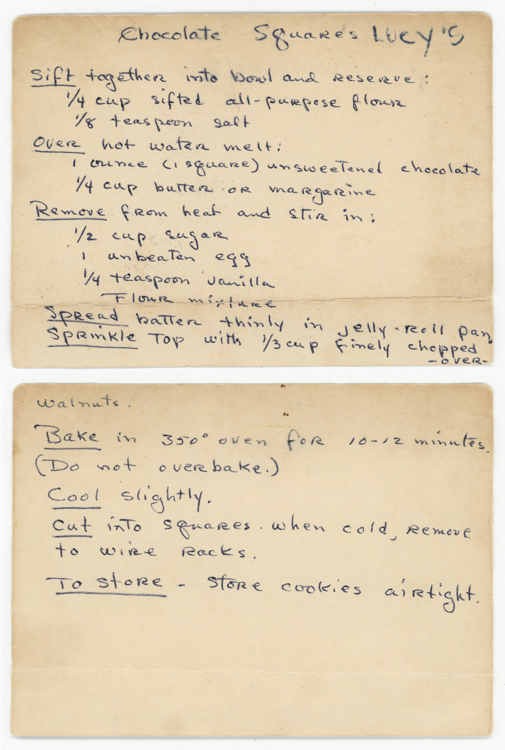 Chocolate Squares LUCY'S
Sift together into bowl and reserve:
1/4 cup sifted all-purpose flour
1/8 teaspoon salt
Over hot water melt:
1 ounce (1 square) unsweetened chocolate
1/4 cup butter or margarine
Remove from heat and stir in:
1/2 cup sugar
1 unbeaten egg
1/4 teaspoon vanilla
Flour mixture
Spread batter thinly in jelly-roll pan
Sprinkle Top with 1/3 cup finely chopped
-over-
walnuts.
Bake in 350° oven for 10-12 minutes.
(Do not overbake.)
Cool slightly.
Cut into squares. When cold, remove
to wire racks.
To store - Store cookies airtight.